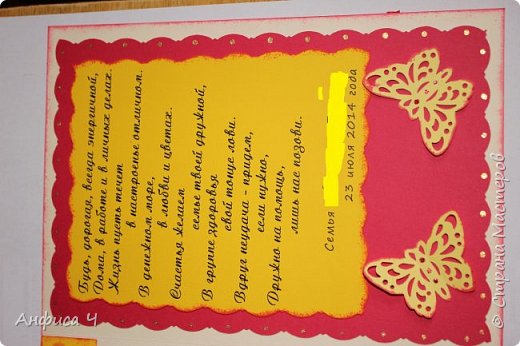 Будь, дорогая, всегда энергичной,
Дома, в работе и в личных делах.
Жизнь пусть течет
в настроенье отличном.
В денежном море,
в любви и цветах.
Счастья желаем
семье твоей дружной,
В группе здоровья
свой тонус лови.
Вдруг неудача - придем,
если нужно,
Дружно на помощь,
лишь нас позови.
Семья
23 июля 2014 года
Анфиса Ч
© Страна Мастеров